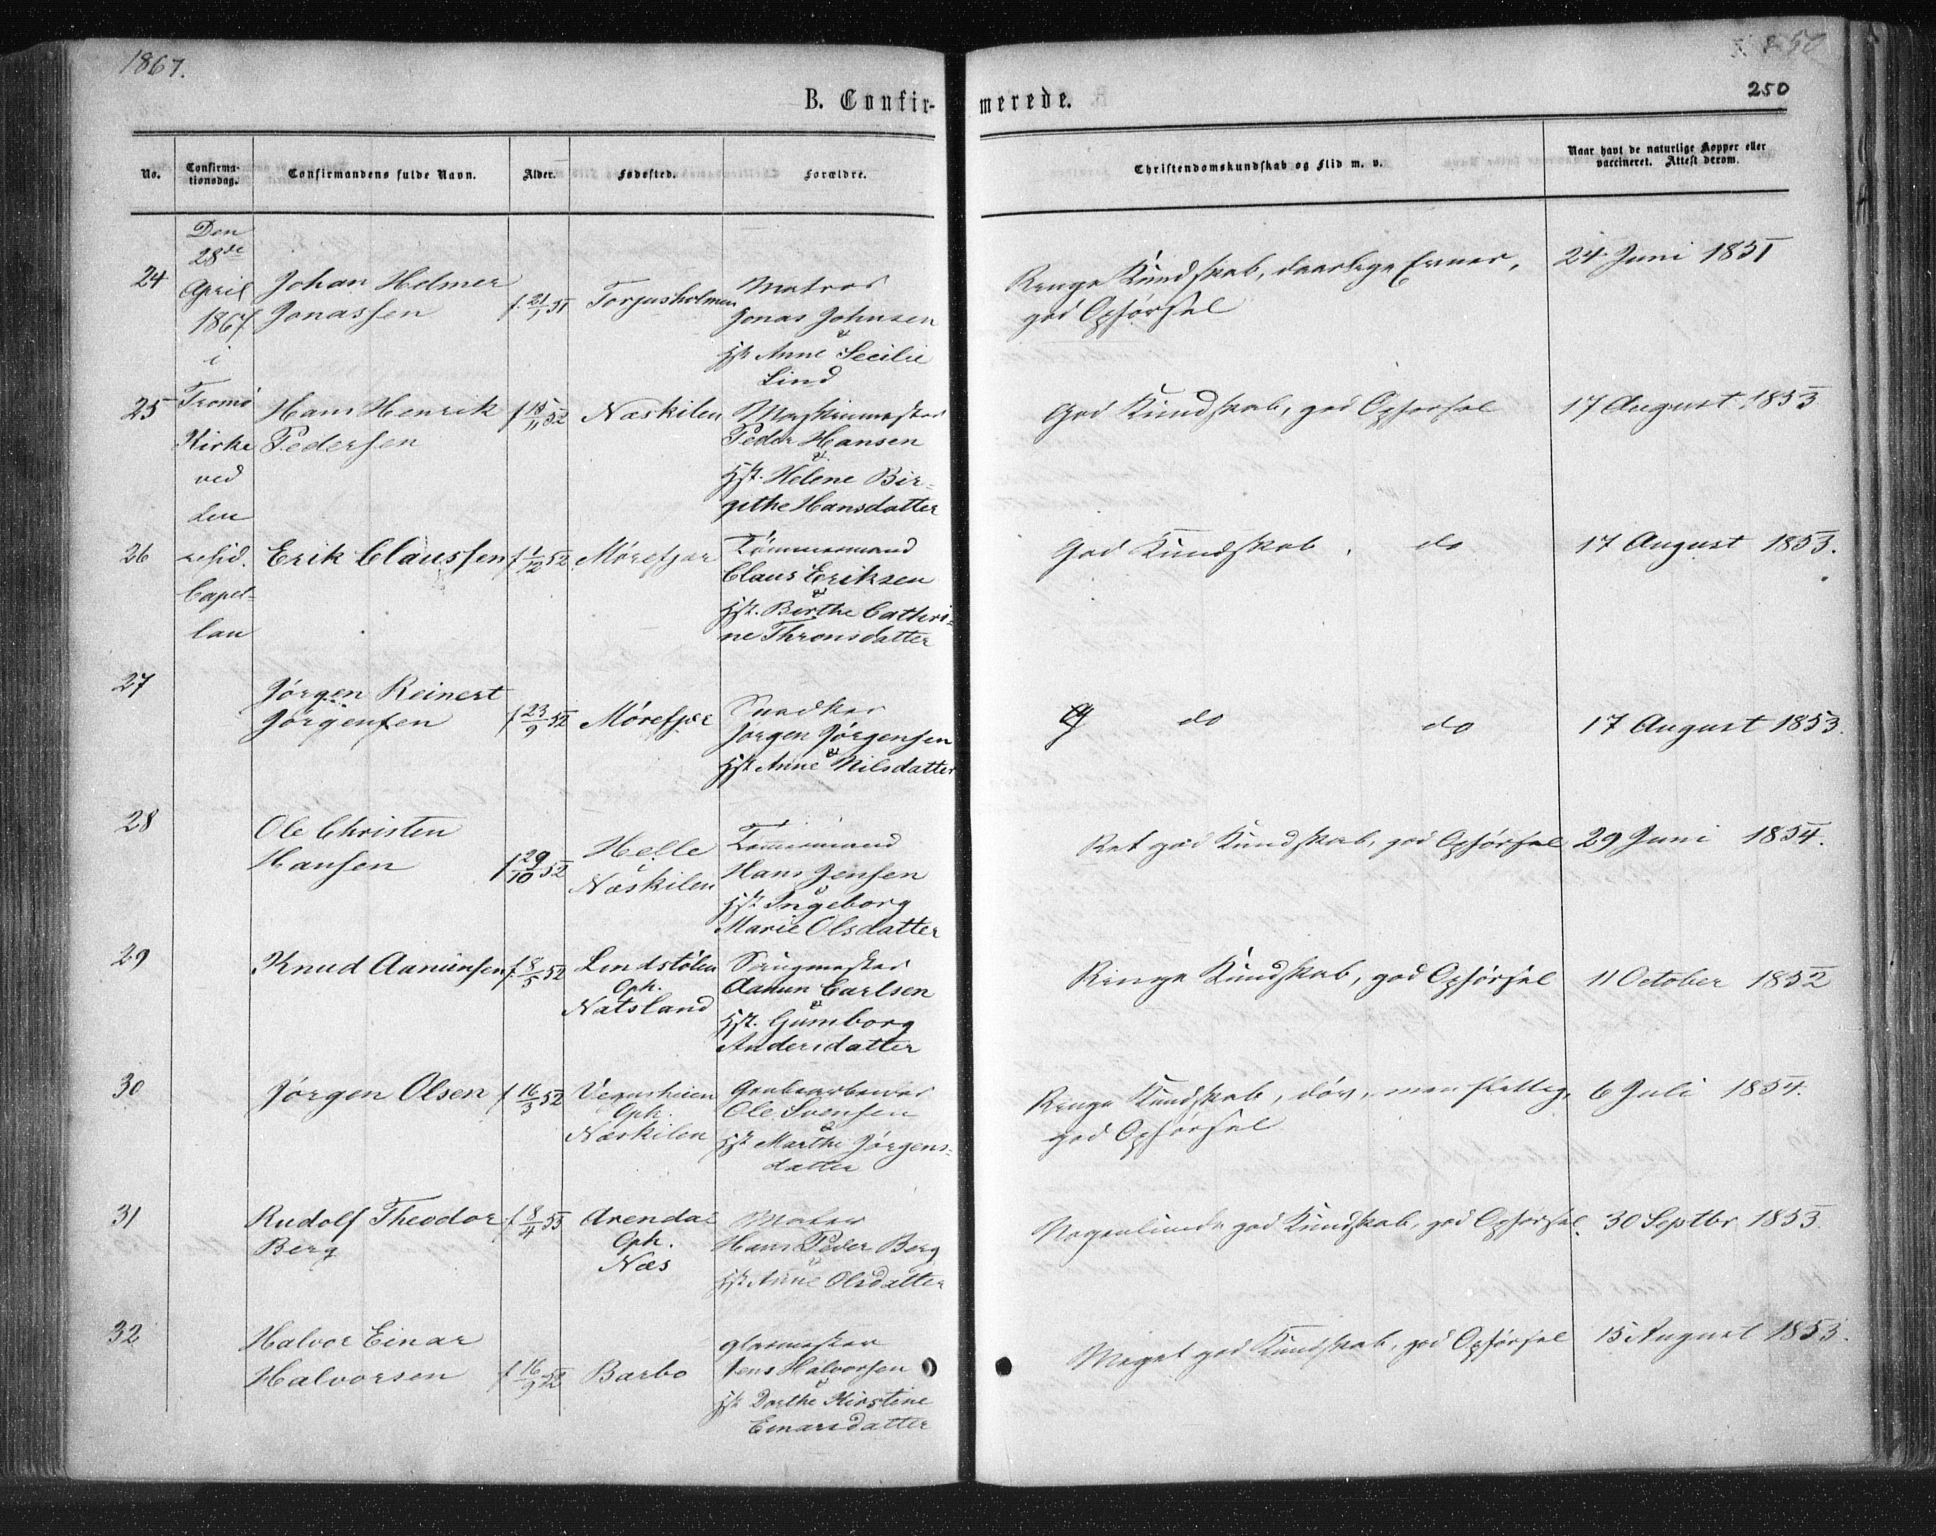 1867.
250
B. Confir- merede.
No. Confirma-tionsdag. Confirmandens fulde Navn. Alder. Fødested. Forældre. Christendomskundskab og Flid m. v. Naar havt de naturlige Kopper eller vaccineret. Attest derom.
Den
28de
April
1867.
i
Tromø
Kirke
ved
den
resid.
Capel-
lan
24 Johan Helmer
Jonassen
f. 21/1 51
Torjusholmen
Matros
Jonas Johnsen
&
Hst Anne Secilie
Lind
Ringe Kundskab, daarlige Evner,
god Opførsel
24 Juni 1851
25 Hans Henrik
Pedersen
f 15/11 52
Næskilen
Maskinmester
Peder Hansen
&
Hst. Helene Bir-
githe Hansdatter
God Kundskab, god Opførsel
17 August 1853
26 Erik Claussen
f 1/12 52
Mørefjær
Tømmermand
Claus Eriksen
&
Hst. Berthe Cathri-
ne Thronsdatter
God Kundskab, do
17 August 1853.
27 Jørgen Reinert
Jørgensen
f 23/9 52
Mørefjær
Snedker
Jørgen Jørgensen
&
Hst. Anne Nilsdatter
do do
17 August 1853.
28 Ole Christen
Hansen
f 29/10 52
Helle
Næskilen
Tømmermand
Hans Jensen
&
Hst. Ingeborg
Marie Olsdatter
Ret god Kundskab, god Opførsel
29 Juni 1854.
29 Knud Aanunsen
f. 8/5 52
Lindstølen
Oph.
Natsland
Saugmester
Aanun Carlsen
&
Hst. Gumborg
Andersdatter
Ringe Kundskab, god Opførsel
11 October 1852
30 Jørgen Olsen
f 16/3 52
Vegusheien
Oph.
Næskilen
Grubearbeider
Ole Svensen
&
Hst Marthe Jørgens-
datter
Ringe Kundskab, døv, men flittig,
god Opførsel
6 Juli 1854.
31 Rudolf Theodor
Berg
f. 8/4 53
Arendal
Oph.
Næs
Maler
Hans Peder Berg
&
Hst Anne Olsdatter
Nogenlunde god Kundskab, god Opførsel.
30 Septbr 1853.
32 Halvor Einar
Halvorsen
f 16/9 52
Barbo
Glarmester
Jens Halvorsen
&
Hst Dorthe Kirstine
Einarsdatter
Meget god Kundskab, god Opførsel
15 August 1853.